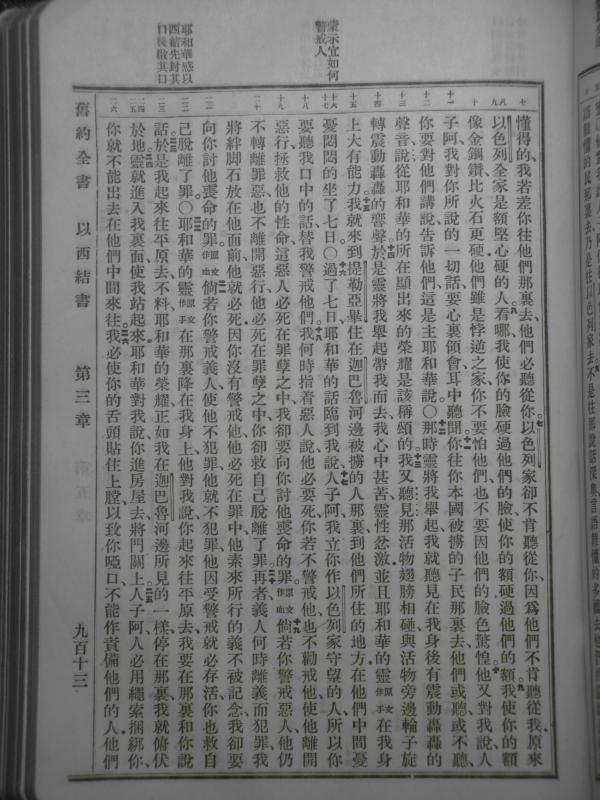 蒙示宜如何
警戒人
耶和華感以
西結先封其
口後啟其口
懂得的我若差你往他們那裏去他們必聽從你以色列家卻不肯聽從你因爲他們不肯聽從我原來
以色列全家是額堅心硬的人看哪我使你的臉硬過他們的臉使你的額硬過他們的額我使你的額
像金鋼鑽比火石更硬他們雖是悖逆之家你不要怕他們也不要因他們的臉色驚惶他又對我說人
子阿我對你所說的一切話要心裏領會耳中聽聞你往你本國被擄的子民那裏去他們或聽或不聽
你要對他們講說告訴他們這是主耶和華說〇那時靈將我舉起我就聽見在我身後有震動轟轟的
聲音說從耶和華的所在顯出來的榮耀是該稱頌的我又聽見那活物翅膀相碰與活物旁邊輪子旋
轉震動轟轟的響聲於是靈將我舉起帶我而去我心中甚苦靈性忿激並且耶和華的靈原文作手在我身
上大有能力我就來到提勒亞畢住在迦巴魯河邊被擄的人那裏到他們所住的地方在他們中間憂
憂悶悶的坐了七日〇過了七日耶和華的話臨到我說人子阿我立你作以色列家守望的人所以你
要聽我口中的話替我警戒他們我何時指着惡人說他必要死你若不警戒他也不勸戒他使他離開
惡行拯救他的性命這惡人必死在罪孽之中我卻要向你討他喪命的罪原文作血倘若你警戒惡人他仍
不轉離罪惡也不離開惡行他必死在罪孽之中你卻救自己脫離了罪再者義人何時離義而犯罪我
將絆脚石放在他面前他就必死因你沒有警戒他他必死在罪中他素來所行的義不被記念我卻要
向你討他喪命的罪原文作血倘若你警戒義人使他不犯罪他就不犯罪他因受警戒就必存活你也救自
己脫離了罪〇耶和華的靈原文作手在那裏降在我身上他對我說你起來往平原去我要在那裏和你說
話於是我起來往平原去不料耶和華的榮耀正如我在迦巴魯河邊所見的一樣停在那裏我就俯伏
於地靈就進入我裏面使我站起來耶和華對我說你進房屋去將門關上人子阿人必用繩索捆綁你
你就不能出去在他們中間來往我必使你的舌頭貼住上膛以致你啞口不能作責備他們的人他們
舊約全書　以西結書　第三章　九百十三